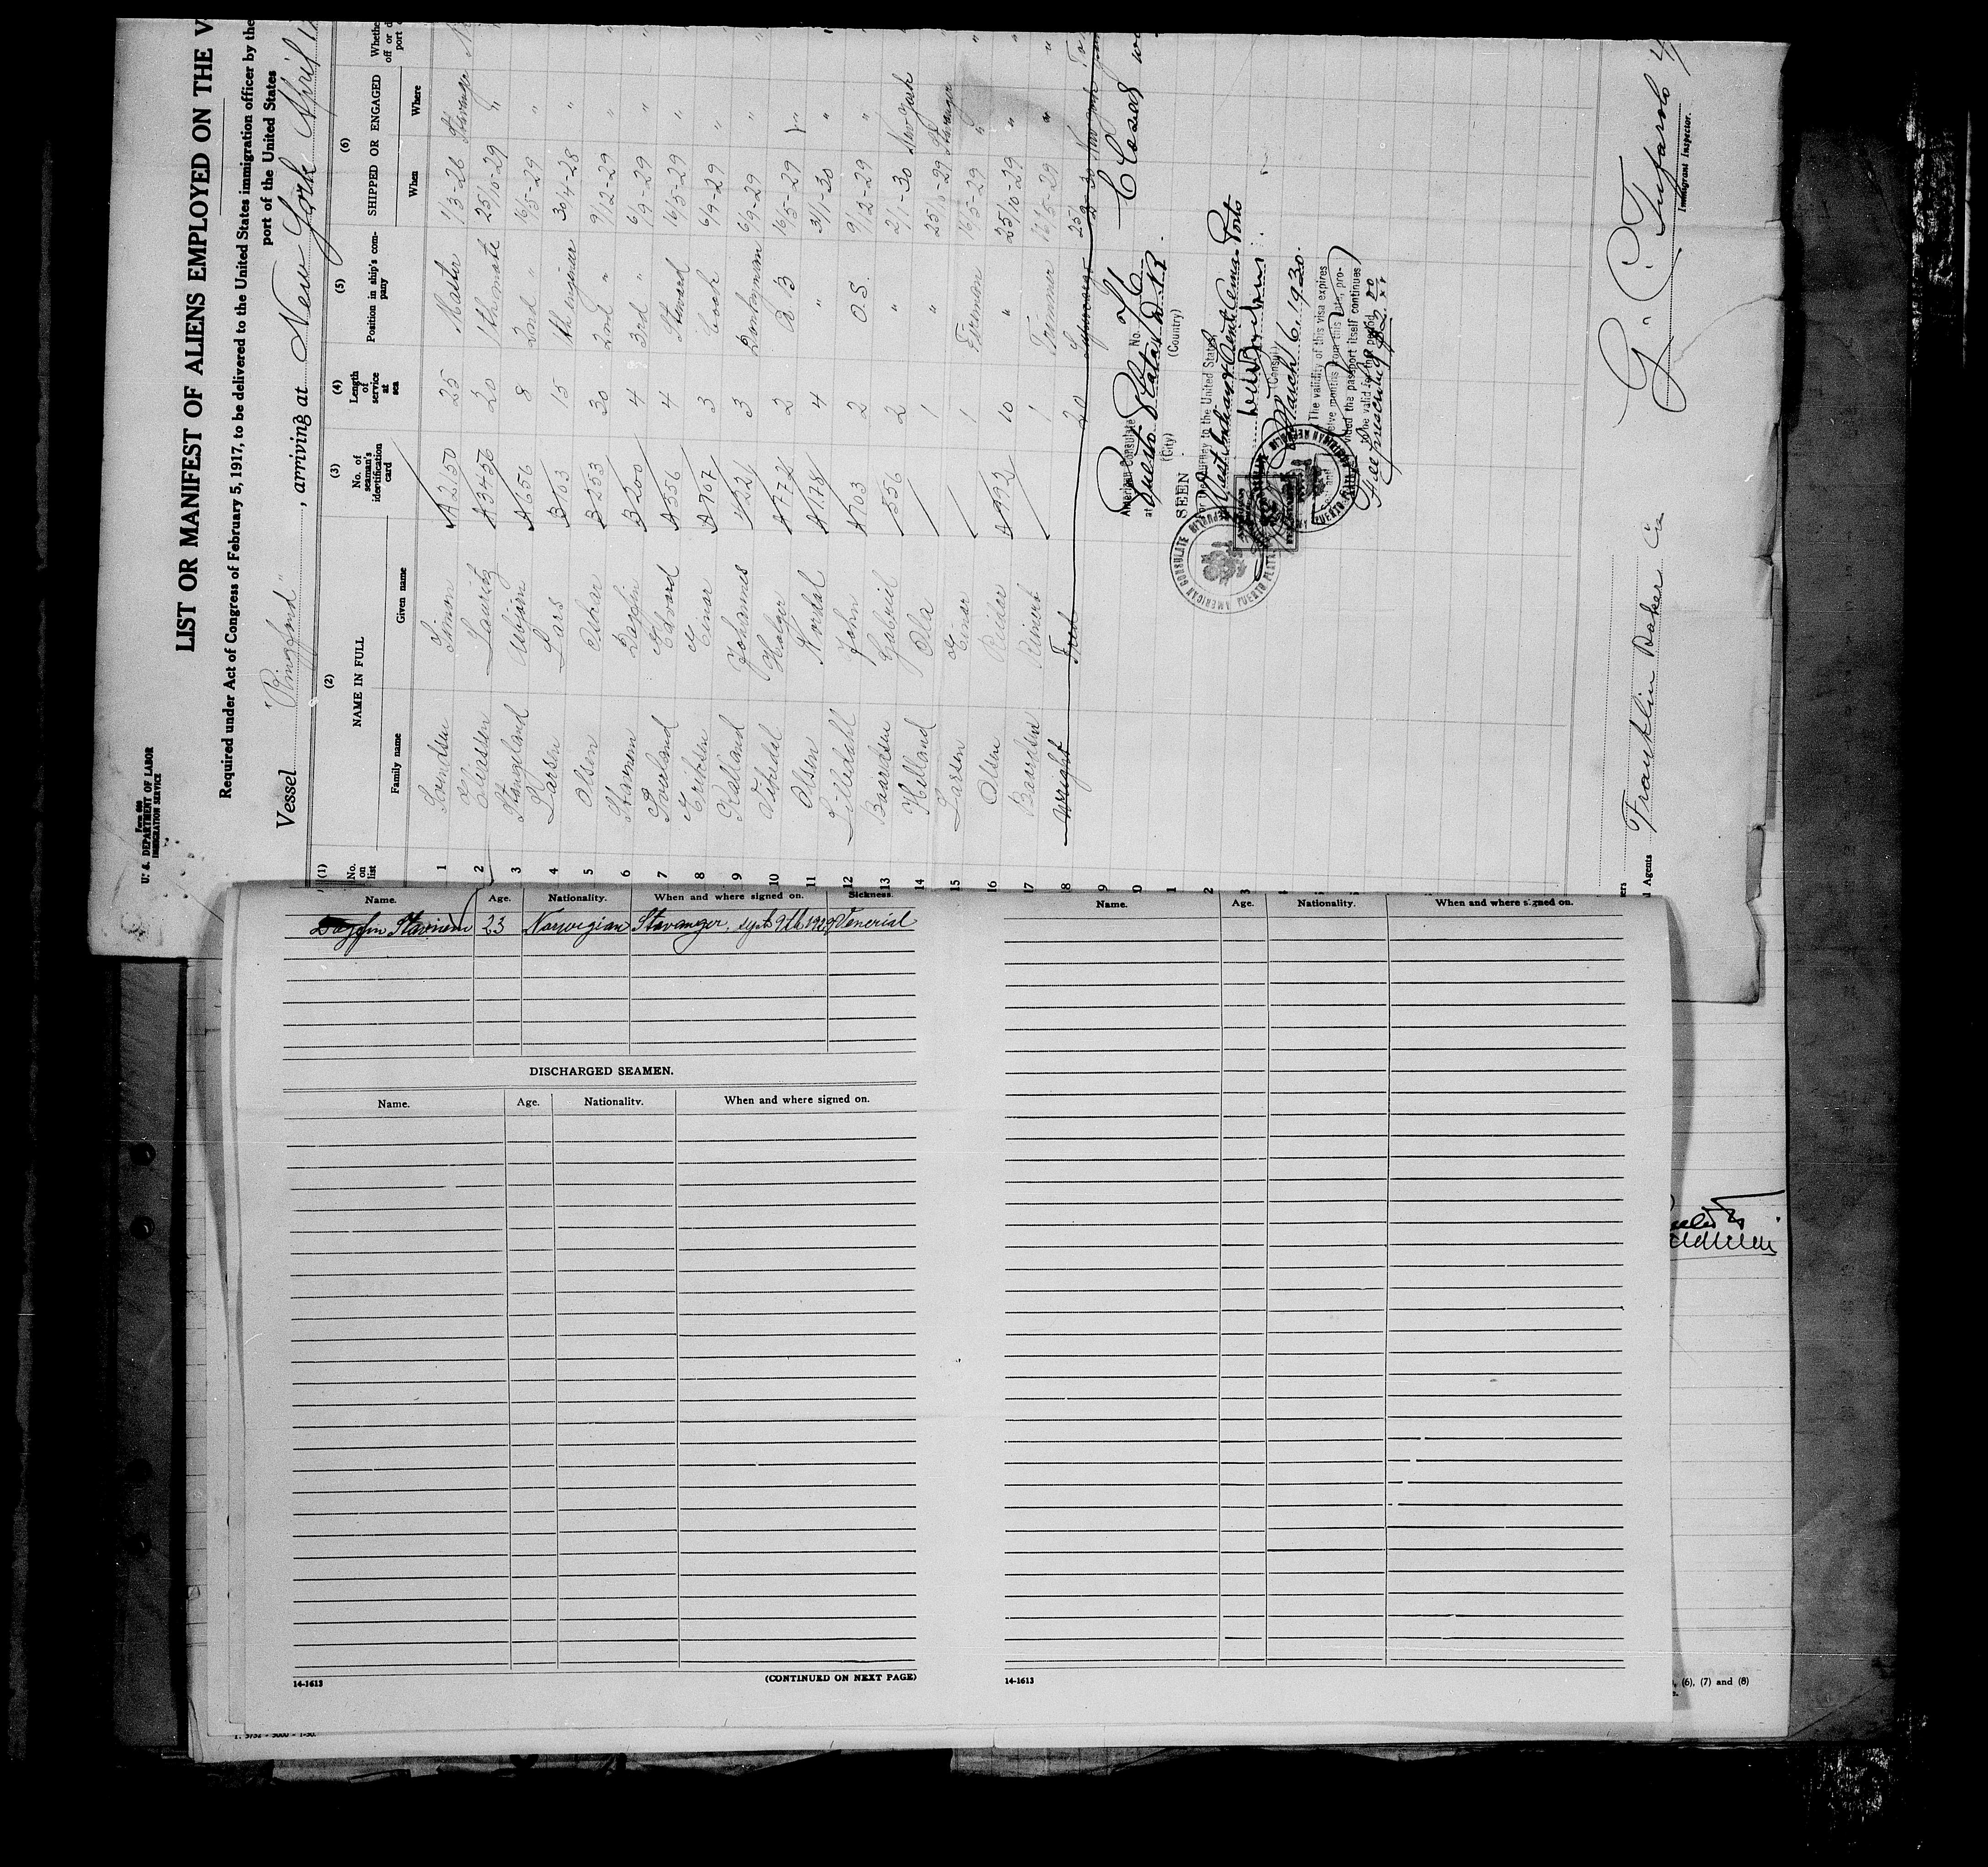 Form 680
U. S. DEPARTMENT OF LABOR
IMMIGRATION SERVICE
LIST OR MANIFEST OF ALIENS EMPLOYED ON THE V
Required under Act of Congress of February 5, 1917, to be delivered to the United States immigration officer by the
port of the United States
Vessel "Ringfond", arriving at New York April 12
(1) (2) (3) (4) (5) (6)
No. on list NAME IN FULL No. of seaman's identification card Length of service at sea Position in ship's company SHIPPED OR ENGAGED Whethe off or d port
Family name Given name When Where
1 Svendsen Simon A2150 25 Master 1/3-26 Stavanger
2 Eliassen Lauritz A3456 20 1th mate 25/10-29 "
3 Stangeland Asbjørn A656 8 2nd " 16/5-29 "
4 Larsen Lars B103 15 1th enginer 30/4-28 "
5 Olsen Oskar B253 30 2nd " 9/12-29 "
6 Stavnem Dagfin B200 4 3rd " 6/9-29 "
7 Sveland Edvard A356 4 Steward 16/5-29 "
8 Eriksen Einar A707 3 Cook 6/9-29 "
9 Kalland Johannes 1/221 3 Donkeyman 6/9-29 "
10 Viskedal Holger A772 2 A B 16/5-29 "
11 Olsen Nordal A178 4 " 3/1-30 "
12 Lilledahl John A703 2 O.S. 9/12-29 "
13 Baardsen Gabriel 556 2 " 2/1-30 New York
14 Helland Ola 1 " 25/10-29 Stavanger
15 Larsen Einar 1 Fireman 16/5-29 "
16 Olsen Reidar A992 10 " 25/10-29 "
17 Baardsen Reinert 1 Trimmer 16/5-29 "
18 Wright Fred 20 Supercargo 25/2-30 New York
9
0
1
2
3
American Consulate No. 76
at Puerto Plata D.R.
(City) (Country)
SEEN
For the journey to the United States
West Indian & Central Amer. Ports
(Consul)
March 6. 1930.
The validity of this visa expires
twelve months from this date, provided the passport itself continues
to be valid for that period
Fee prescribed $2.00
AMERICAN CONSULATE PUERTO PLATA REPUBLIC
C Casas
Agents Franklin Baker Co
G. C. Tufarolo
Immigrant Inspector.
Name. Age. Nationality. When and where signed on. Sickness.
Dagfin Stavnem 23 Norwegian Stavanger, sept 9th 1929 Venerial
DISCHARGED SEAMEN.
Name. Age. Nationality. When and where signed on.
14-1613 (CONTINUED ON NEXT PAGE)
Name. Age. Nationality. When and where signed on.
14-1613
, (6), (7) and (8)